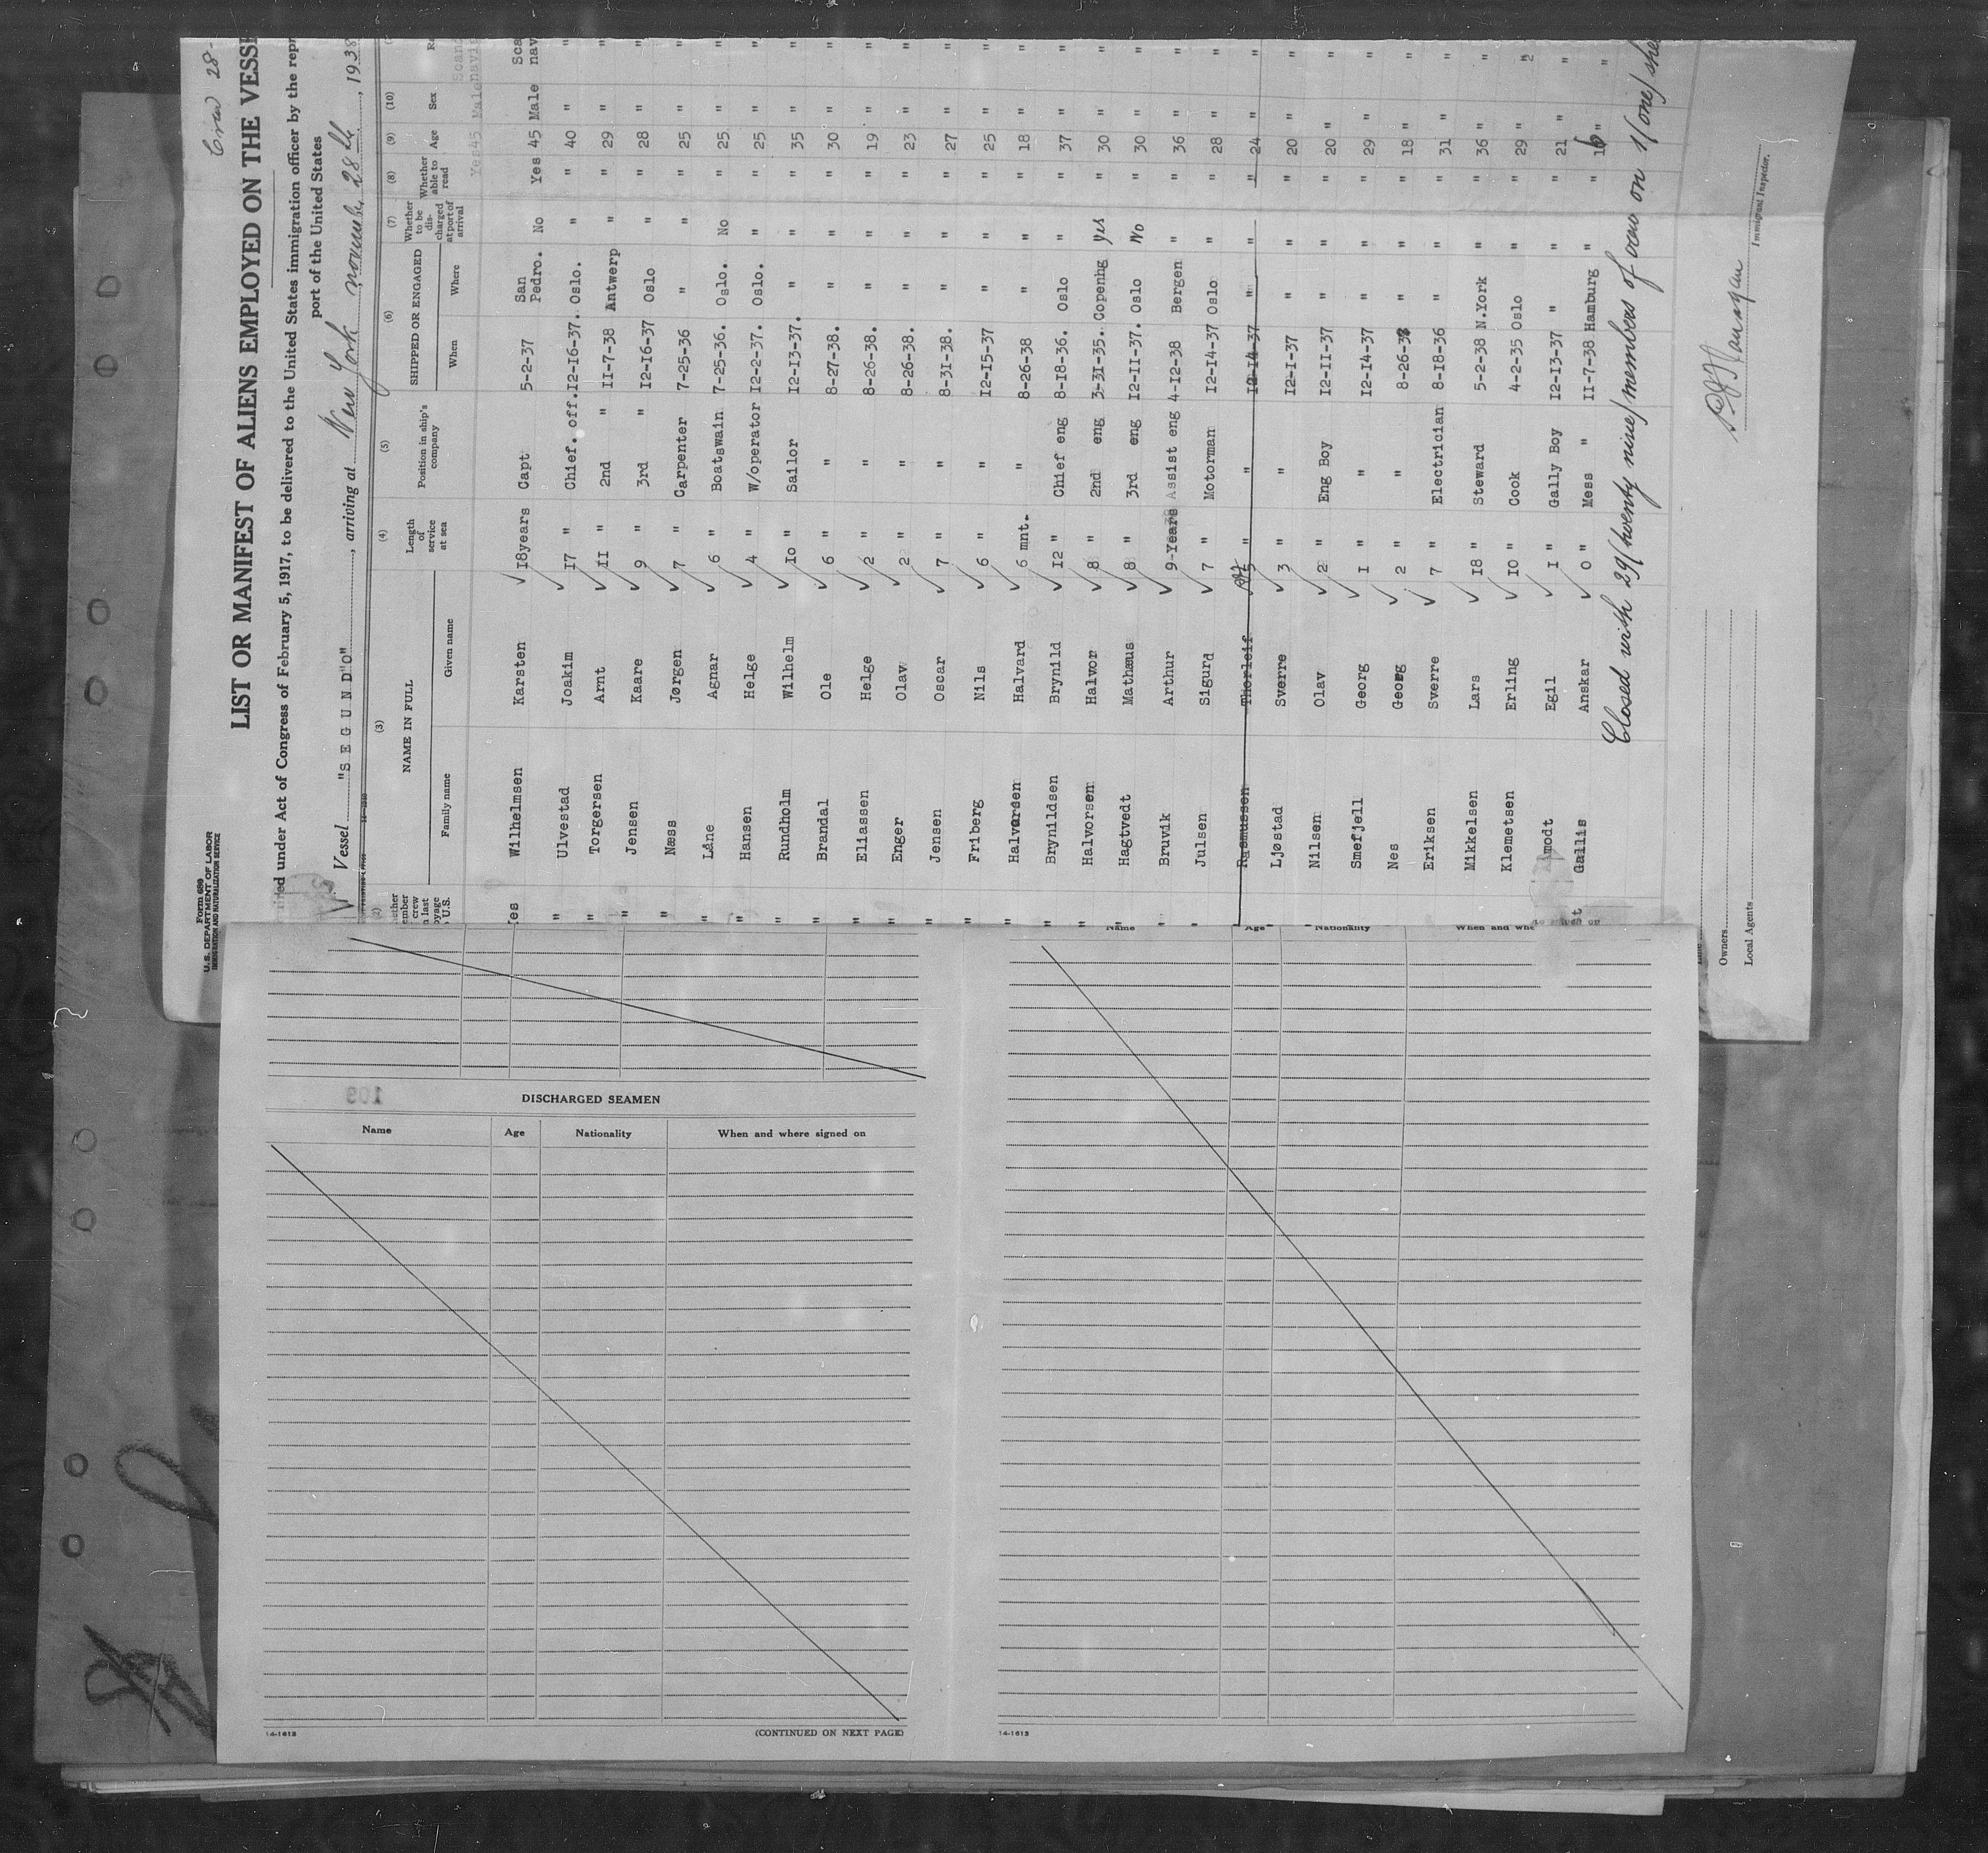 Crew 28-
Form 689
U.S. DEPARTMENT OF LABOR
IMMIGRATION AND NATURALIZATION SERVICE
LIST OR MANIFEST OF ALIENS EMPLOYED ON THE VESSE
under Act of Congress of February 5, 1917, to be delivered to the United States immigration officer by the repr
port of the United States
Vessel "S E G U N D"O", arriving at New York November 28th, 1938
(3) (4) (5) (6) (7) (8) (9) (10)
NAME IN FULL Length of service at sea Position in ship's company SHIPPED OR ENGAGED Whether to be discharged at port of arrival Whether able to read Age Sex
Family name Given name When Where
Yes45 Male
Wilhelmsen Karsten 18years Capt 5-2-37 San Pedro. No Yes 45 Male Sca nav
" Ulvestad Joakim 17 " Chief. off. 12-16-37. Oslo. " " 40 " "
" Torgersen Arnt 11 " 2nd " 11-7-38 Antwerp " " 29 " "
" Jensen Kaare 9 " 3rd " 12-16-37 Oslo " " 28 " "
" Næss Jørgen 7 " Carpenter 7-25-36 " " " 25 " "
" Låne Agnar 6 " Boatswain 7-25-36. Oslo. No " 25 " "
" Hansen Helge 4 " W/operator 12-2-37. Oslo. " " 25 " "
" Rundholm Wilhelm 10 " Sailor 12-13-37. " " " 35 " "
" Brandal Ole 6 " " 8-27-38. " " " 30 " "
" Eliassen Helge 2 " " 8-26-38. " " " 19 " "
" Enger Olav 2 " " 8-26-38. " " " 23 " "
" Jensen Oscar 7 " " 8-31-38. " " " 27 " "
" Friberg Nils 6 " " 12-15-37 " " " 25 " "
" Halvorsen Halvard 6 mnt. " 8-26-38 " " " 18 " "
" Brynildsen Brynild 12 " Chief eng 8-18-36. Oslo " " 37 " "
" Halvorsen Halvor 8 " 2nd eng 3-31-35. Copenhg Yes " 30 " "
" Hagtvedt Mathæus 8 " 3rd eng 12-11-37. Oslo No " 30 " "
" Bruvik Arthur 9-Years Assist eng 4-12-38 Bergen " " 36 " "
" Julsen Sigurd 7 " Motorman 12-14-37 Oslo " " 28 " "
Rasmussen Thorleif " " 12-14-37 " " " 24 " "
Ljøstad Sverre 3 " " 12-1-37 " " " 20 " "
Nilsen Olav 2 " Eng Boy 12-11-37 " " " 20 " "
Smefjell Georg 1 " " 12-14-37 " " " 29 " "
Nes Georg 2 " " 8-26-38 " " " 18 " "
Eriksen Sverre 7 " Electrician 8-18-36 " " " 31 " "
Mikkelsen Lars 18 " Steward 5-2-38 N.York " " 36 " "
Klemetsen Erling 10 " Cook 4-2-35 Oslo " " 29 " "
modt Egil 1 " Gally Boy 12-13-37 " " " 21 " "
Gallis Anskar 0 " Mess " 11-7-38 Hamburg " " 16 " "
Closed with 29 (twenty nine) members of crew on 1 (one) shee
Immigrant Inspector.
Owners
Local Agents
109
DISCHARGED SEAMEN
Name Age Nationality When and where signed on
14-1613 (CONTINUED ON NEXT PAGE)
Name Age Nationality When and whe
14-1613